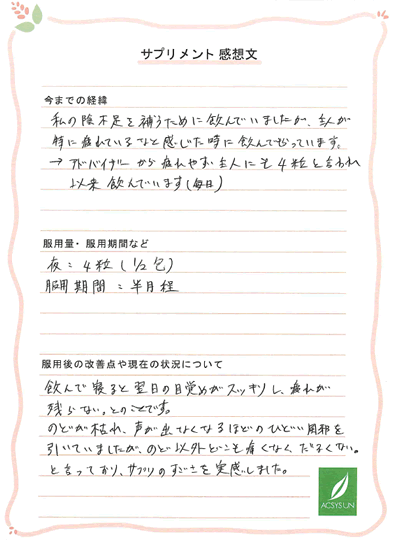 サプリメント 感想文
今までの経緯
私の陰不足を補うために飲んでいましたが、主人が
特に疲れているなと感じた時に飲んでもらっています。
→ アドバイザーから疲れやすい主人にも4粒と言われ
以来 飲んでいます(毎日)
服用量・服用期間など
夜: 4粒 (1/2包)
服用期間 : 半月程
服用後の改善点や現在の状況について
飲んで寝ると翌日の目覚めがスッキリし、疲れが
残らない。とのことです。
のどが枯れ、声が出なくなるほどのひどい風邪を
引いていましたが、のど以外どこも痛くなく、だるくない。
と言っており、サプリのすごさを実感しました。
ACSYSUN